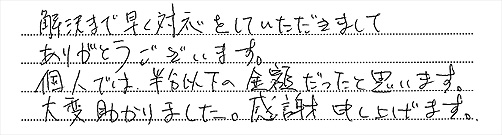 解決まで早く対応をしていただきまして
ありがとうございます。
個人では半分以下の金額だったと思います。
大変助かりました。感謝申し上げます。